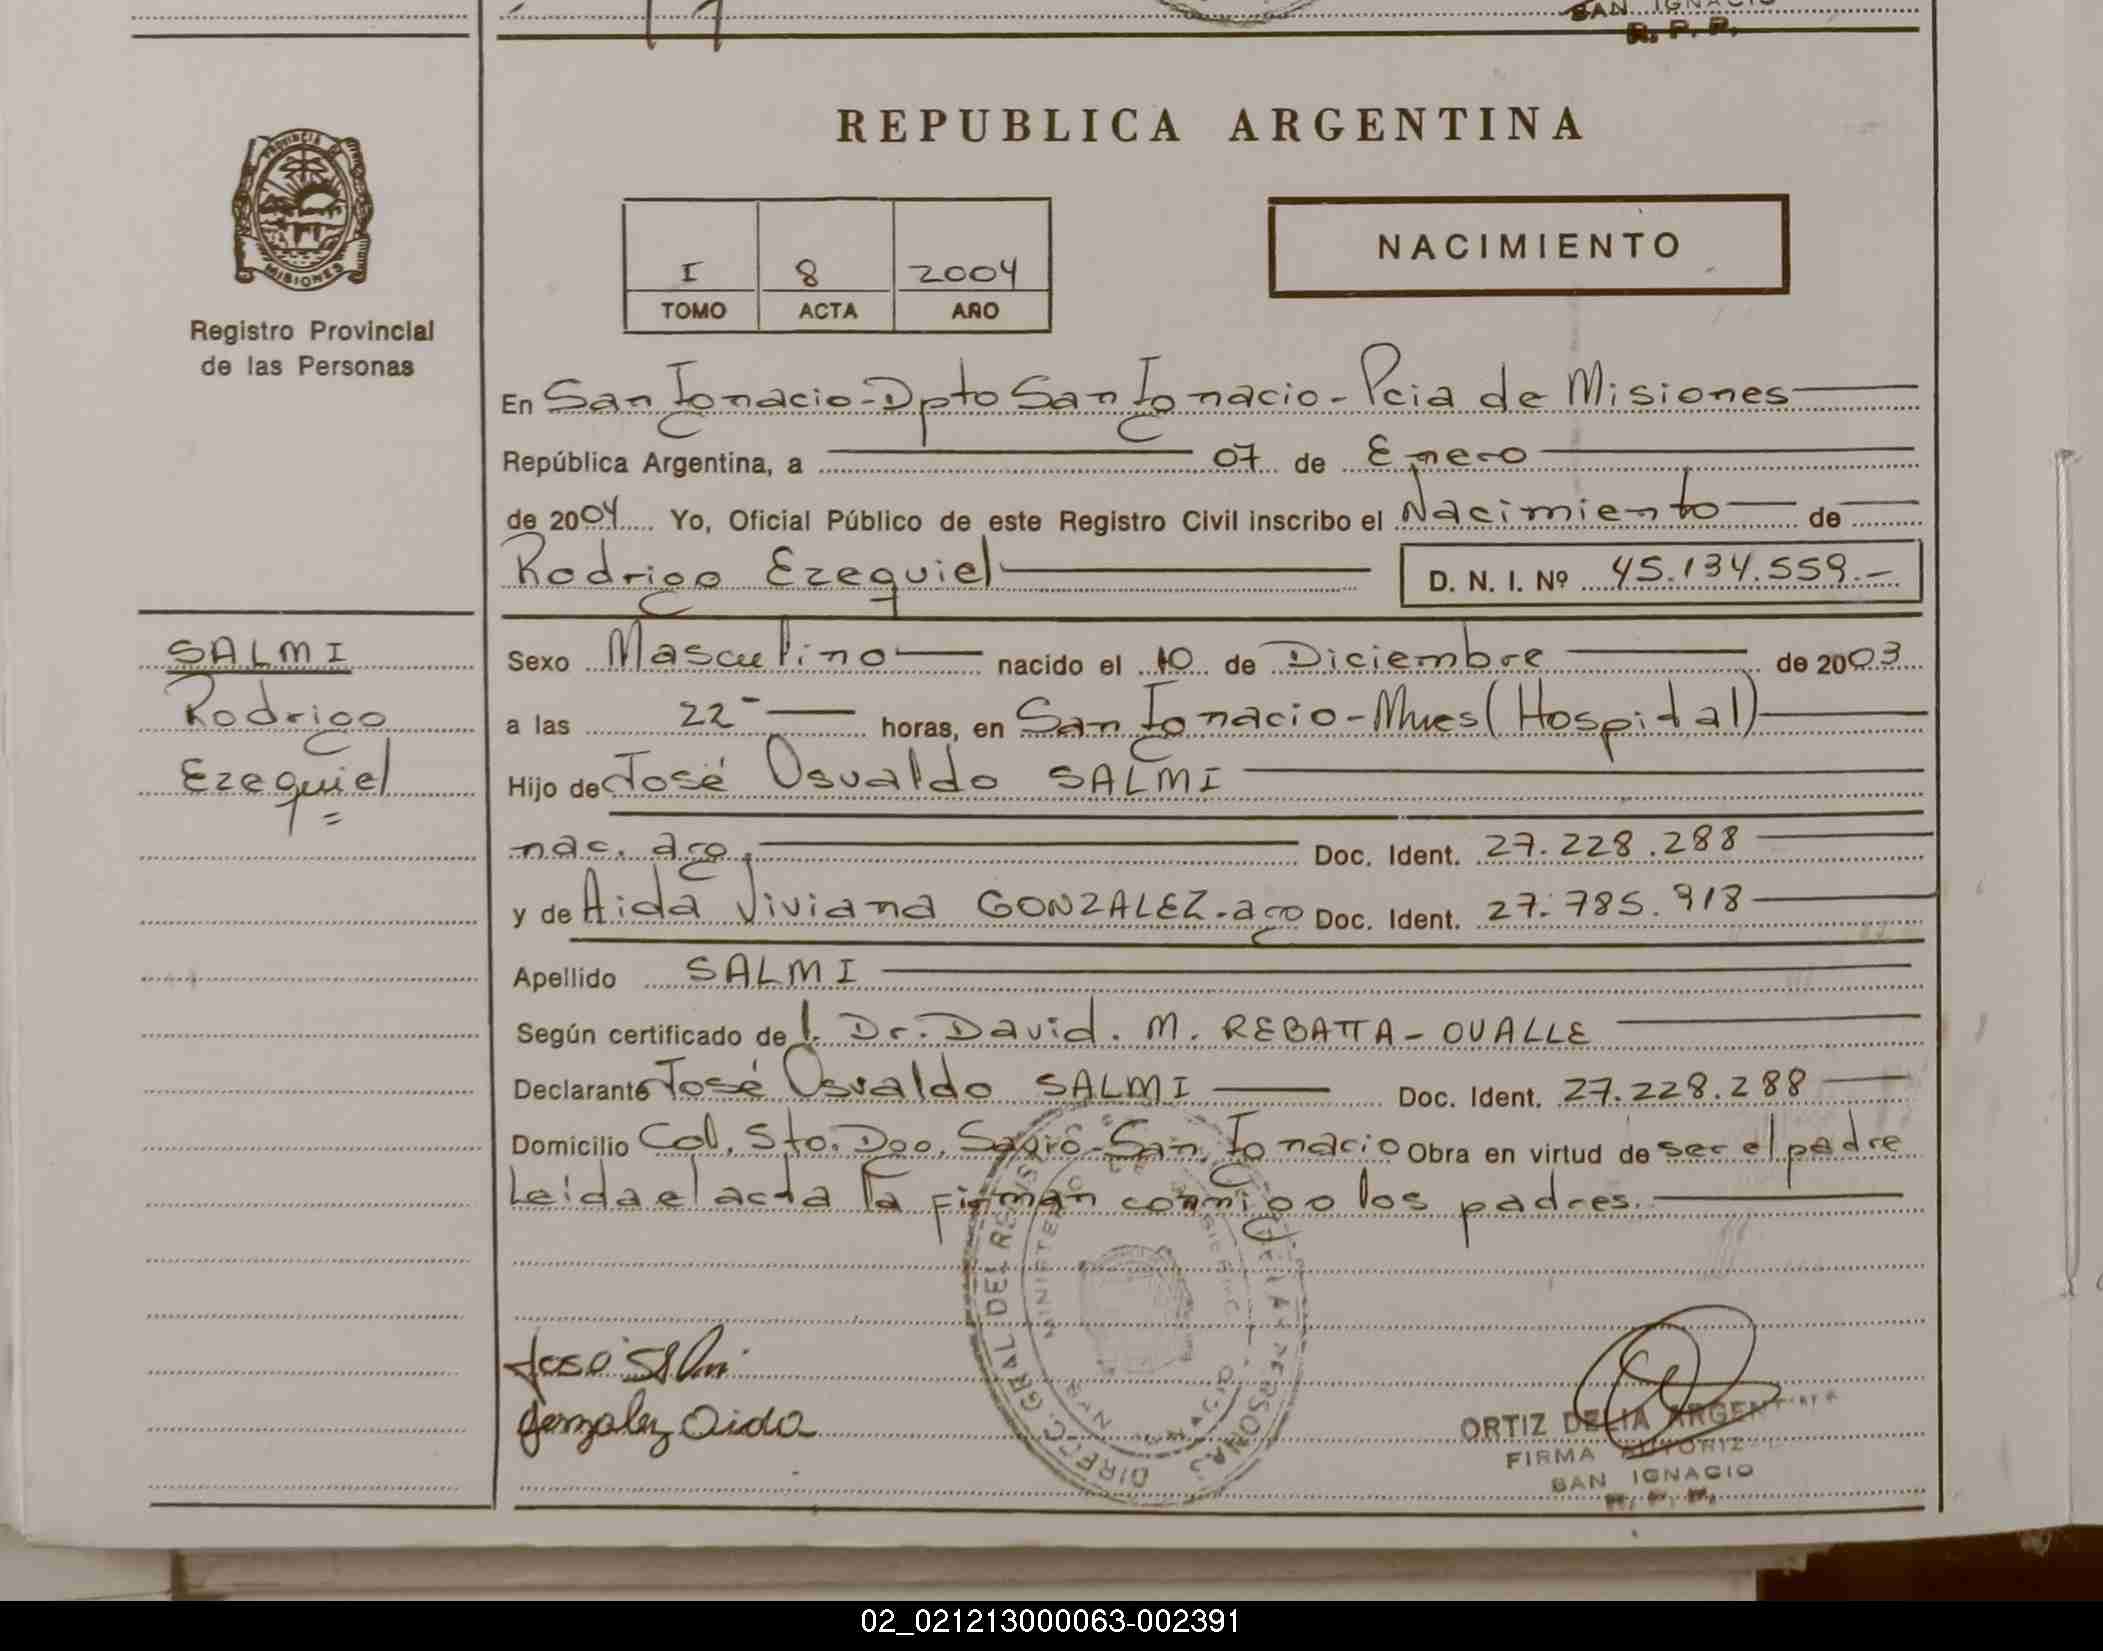 SAN IGNACIO
R. P. P.
REPUBLICA ARGENTINA
PROVINCIA DE
MISIONES
Registro Provincial
de las Personas
I 8 2004
TOMO ACTA AÑO
NACIMIENTO
En San Ignacio-Dpto San Ignacio-Pcia de Misiones
República Argentina, a 07 de Enero
de 2004 Yo, Oficial Público de este Registro Civil inscribo el Nacimiento de
Rodrigo Ezequiel D. N. I. Nº 45.134.559.-
SALMI
Rodrigo
Ezequiel
Sexo Masculino nacido el 10 de Diciembre de 2003
a las 22- horas, en San Ignacio-Mnes (Hospital)
Hijo de José Osvaldo SALMI
nac. arg. Doc. Ident. 27.228.288
y de Aida Viviana GONZALEZ-arg Doc. Ident. 27.785.918
Apellido SALMI
Según certificado de l. Dr. David. M. REBATTA-OVALLE
Declarante José Osvaldo SALMI Doc. Ident. 27.228.288
Domicilio Col. Sto. Dgo. Savio-San Ignacio Obra en virtud de ser el padre
Leida el acta la firman conmigo los padres.
DIRECC. GRAL DEL REGIS
MINISTE
PERSONAS
Jose Salmi
Gonzalez Aida
ORTIZ DELIA ARGENTINA
FIRMA AUTORIZ
SAN IGNACIO
R. P. P.
02_021213000063-002391